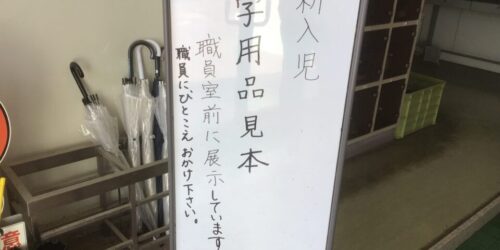 新入児
学用品見本
職員室前に展示しています
職員に、ひとこえ おかけ下さい。
意